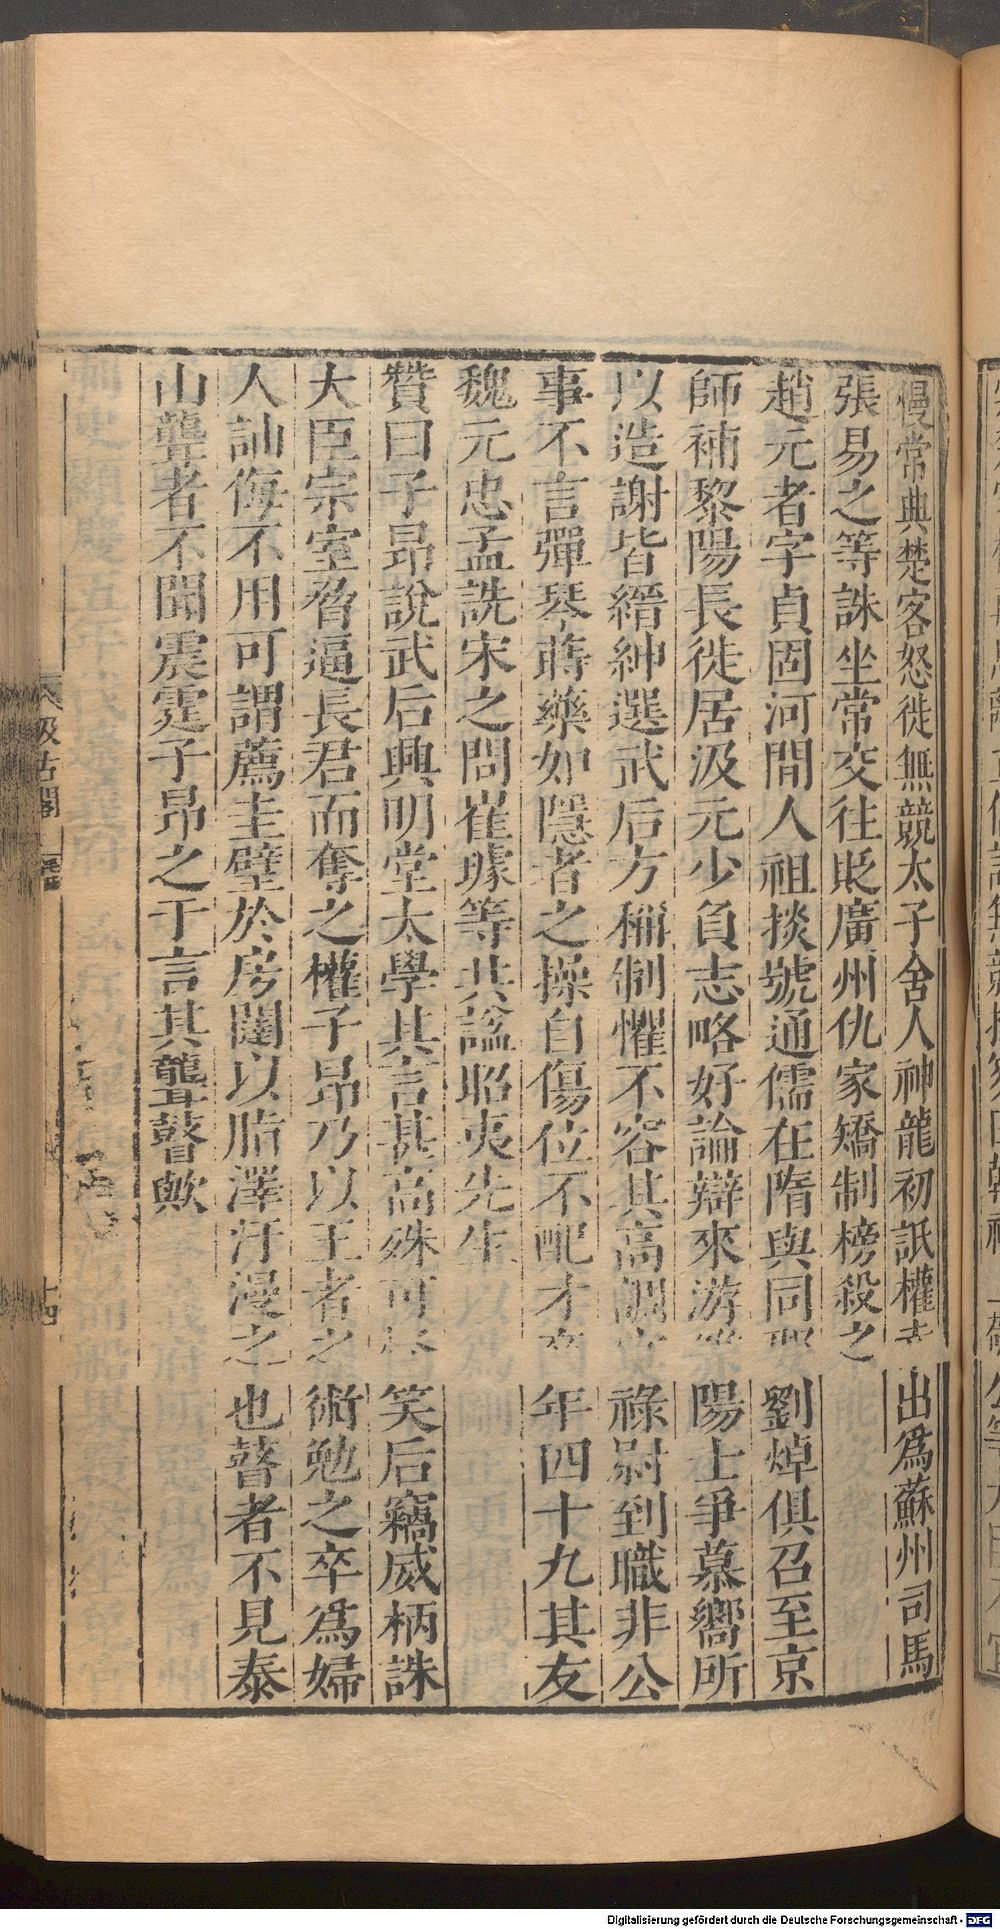 慢常典楚客怒徙無競太子舍人神龍初詆權幸出爲蘇州司馬
張易之等誅坐常交往貶廣州仇家矯制榜殺之
趙元者字貞固河間人祖掞號通儒在隋與同郡劉焯俱召至京
師補黎陽長徙居汲元少負志略好論辯來游雒陽士爭慕嚮所
以造謝皆縉紳選武后方稱制懼不容其高調宜祿尉到職非公
事不言彈琴蒔藥如隱者之操自傷位不配才卒年四十九其友
魏元忠孟詵宋之問崔璩等共諡昭夷先生
贊曰子昂說武后興明堂太學其言甚高殊可怪笑后竊威柄誅
大臣宗室脅逼長君而奪之權子昂乃以王者之術勉之卒爲婦
人訕侮不用可謂薦圭璧於房闥以脂澤汙漫之也瞽者不見泰
山聾者不聞震霆子昂之于言其聾瞽歟
汲古閣
十四
Digitalisierung gefördert durch die Deutsche Forschungsgemeinschaft - DFG